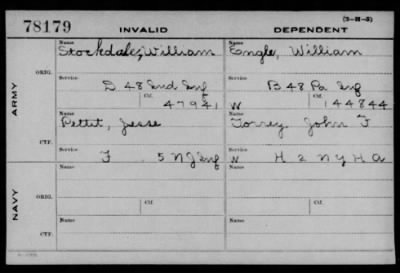 (3-H-5)
78179 INVALID DEPENDENT
Name Name
Stockdale, William Engle, William
ORIG.
Service Service
D 48 Ind Inf B 48 Pa Inf
Ctf. Ctf.
47941 W 144844
ARMY
Name Name
Pettit, Jesse Torrey John F
CTF.
Service Service
F 5 N J Inf W H 2 N Y H A
Name Name
ORIG.
Service Ctf. Service Ctf.
NAVY
Name Name
CTF.